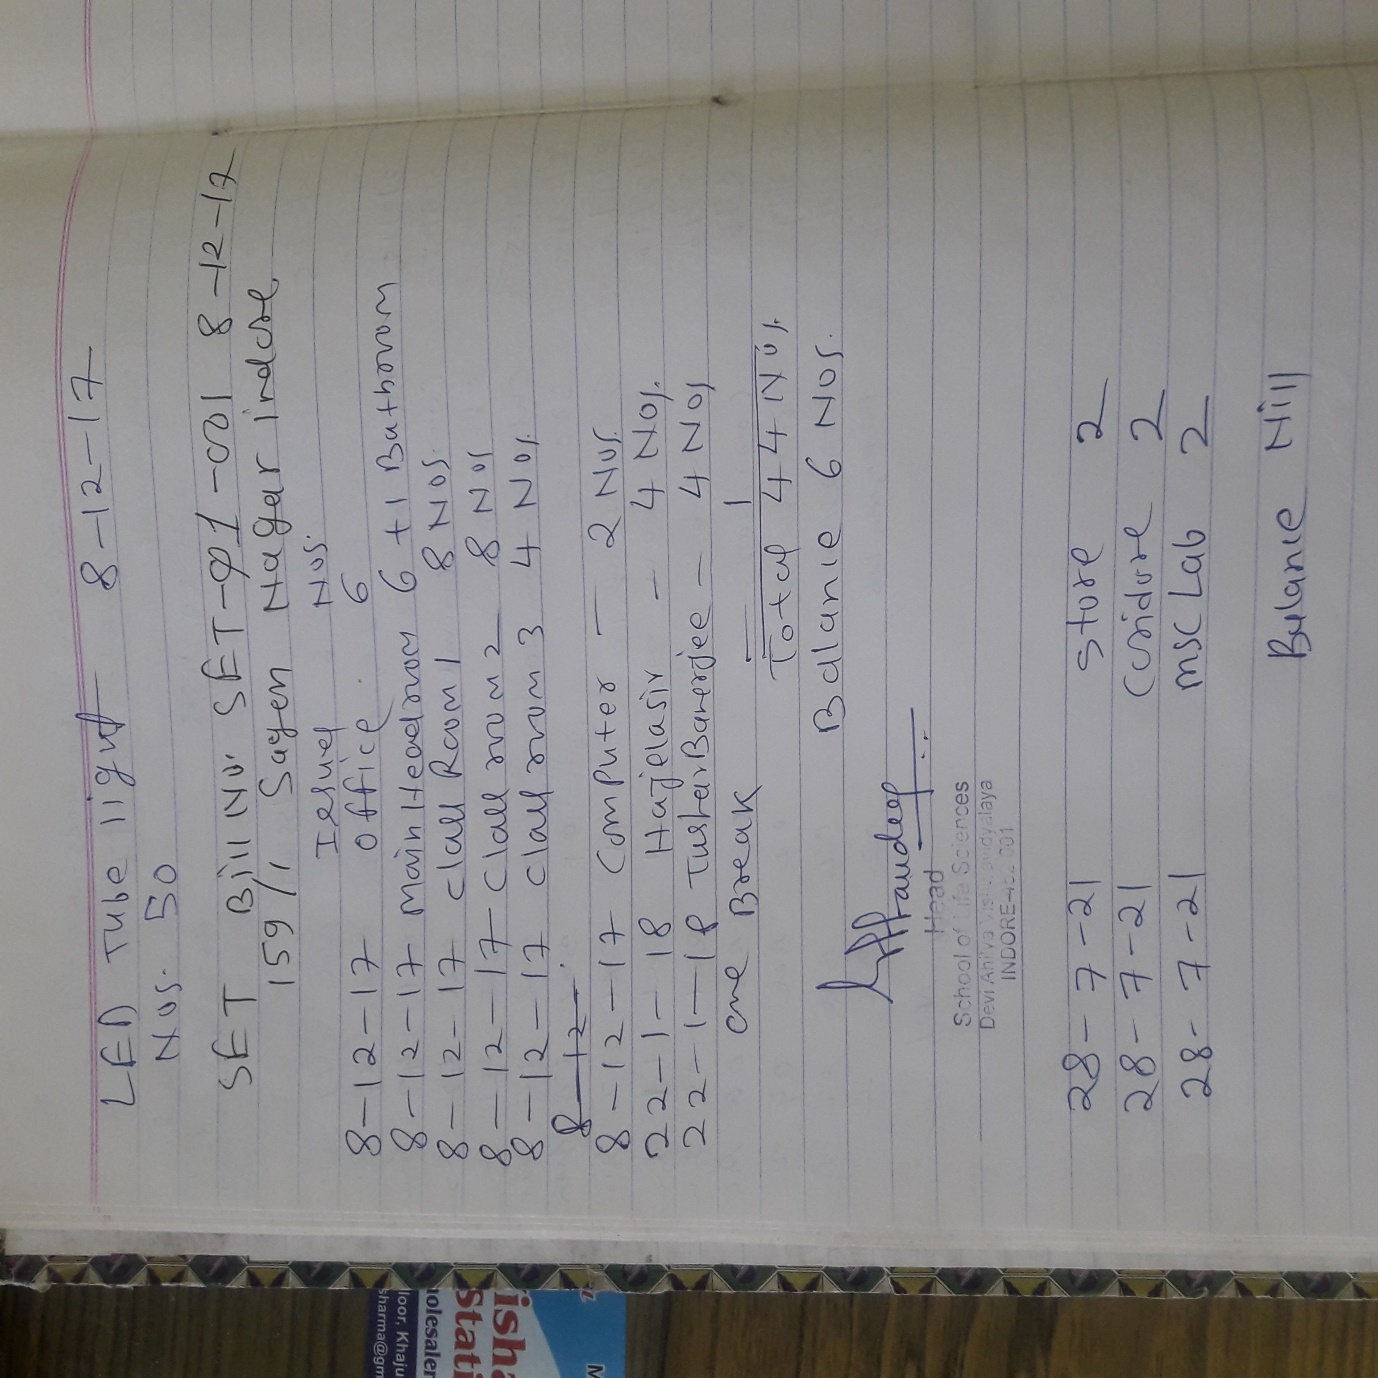 LED Tube light 8-12-17
Nos. 50
SET Bill No. SET-01-001 8-12-17
159/1 Sayen Nagar indore
Issued Nos.
8-12-17 office 6
8-12-17 Main Headroom 6+1 Bathroom
8-12-17 Class Room 1 8 Nos.
8-12-17 Class room 2 8 Nos
8-12-17 Class room 3 4 Nos.
8-12
8-12-17 Computer - 2 Nos.
22-1-18 Hajelasir - 4 Nos.
22-1-18 TusharBanerjee - 4 Nos
one Break 1
Total 44 Nos.
Balanie 6 Nos.
Head
School of Life Sciences
Devi Ahilya Vishwavidyalaya
INDORE-452 001
28-7-21 store 2
28-7-21 Coridore 2
28-7-21 MSC Lab 2
Balanie Nill
isha
Stati
holesaler
loor, Khaju
sharma@gm